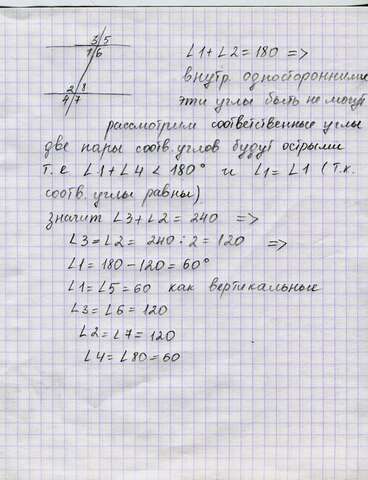 3/5
1/6
2/8
4/7
∠1+∠2=180 =>
внутр. односторонними
эти углы быть не могут
рассмотрим соответственные углы
две пары соотв. углов будут острыми
т.е ∠1+∠4 < 180° и ∠1=∠1 (т.к.
соотв. углы равны)
значит ∠3+∠2=240 =>
∠3=∠2= 240:2=120 =>
∠1=180-120=60°
∠1=∠5=60 как вертикальные
∠3=∠6=120
∠2=∠7=120
∠4=∠80=60